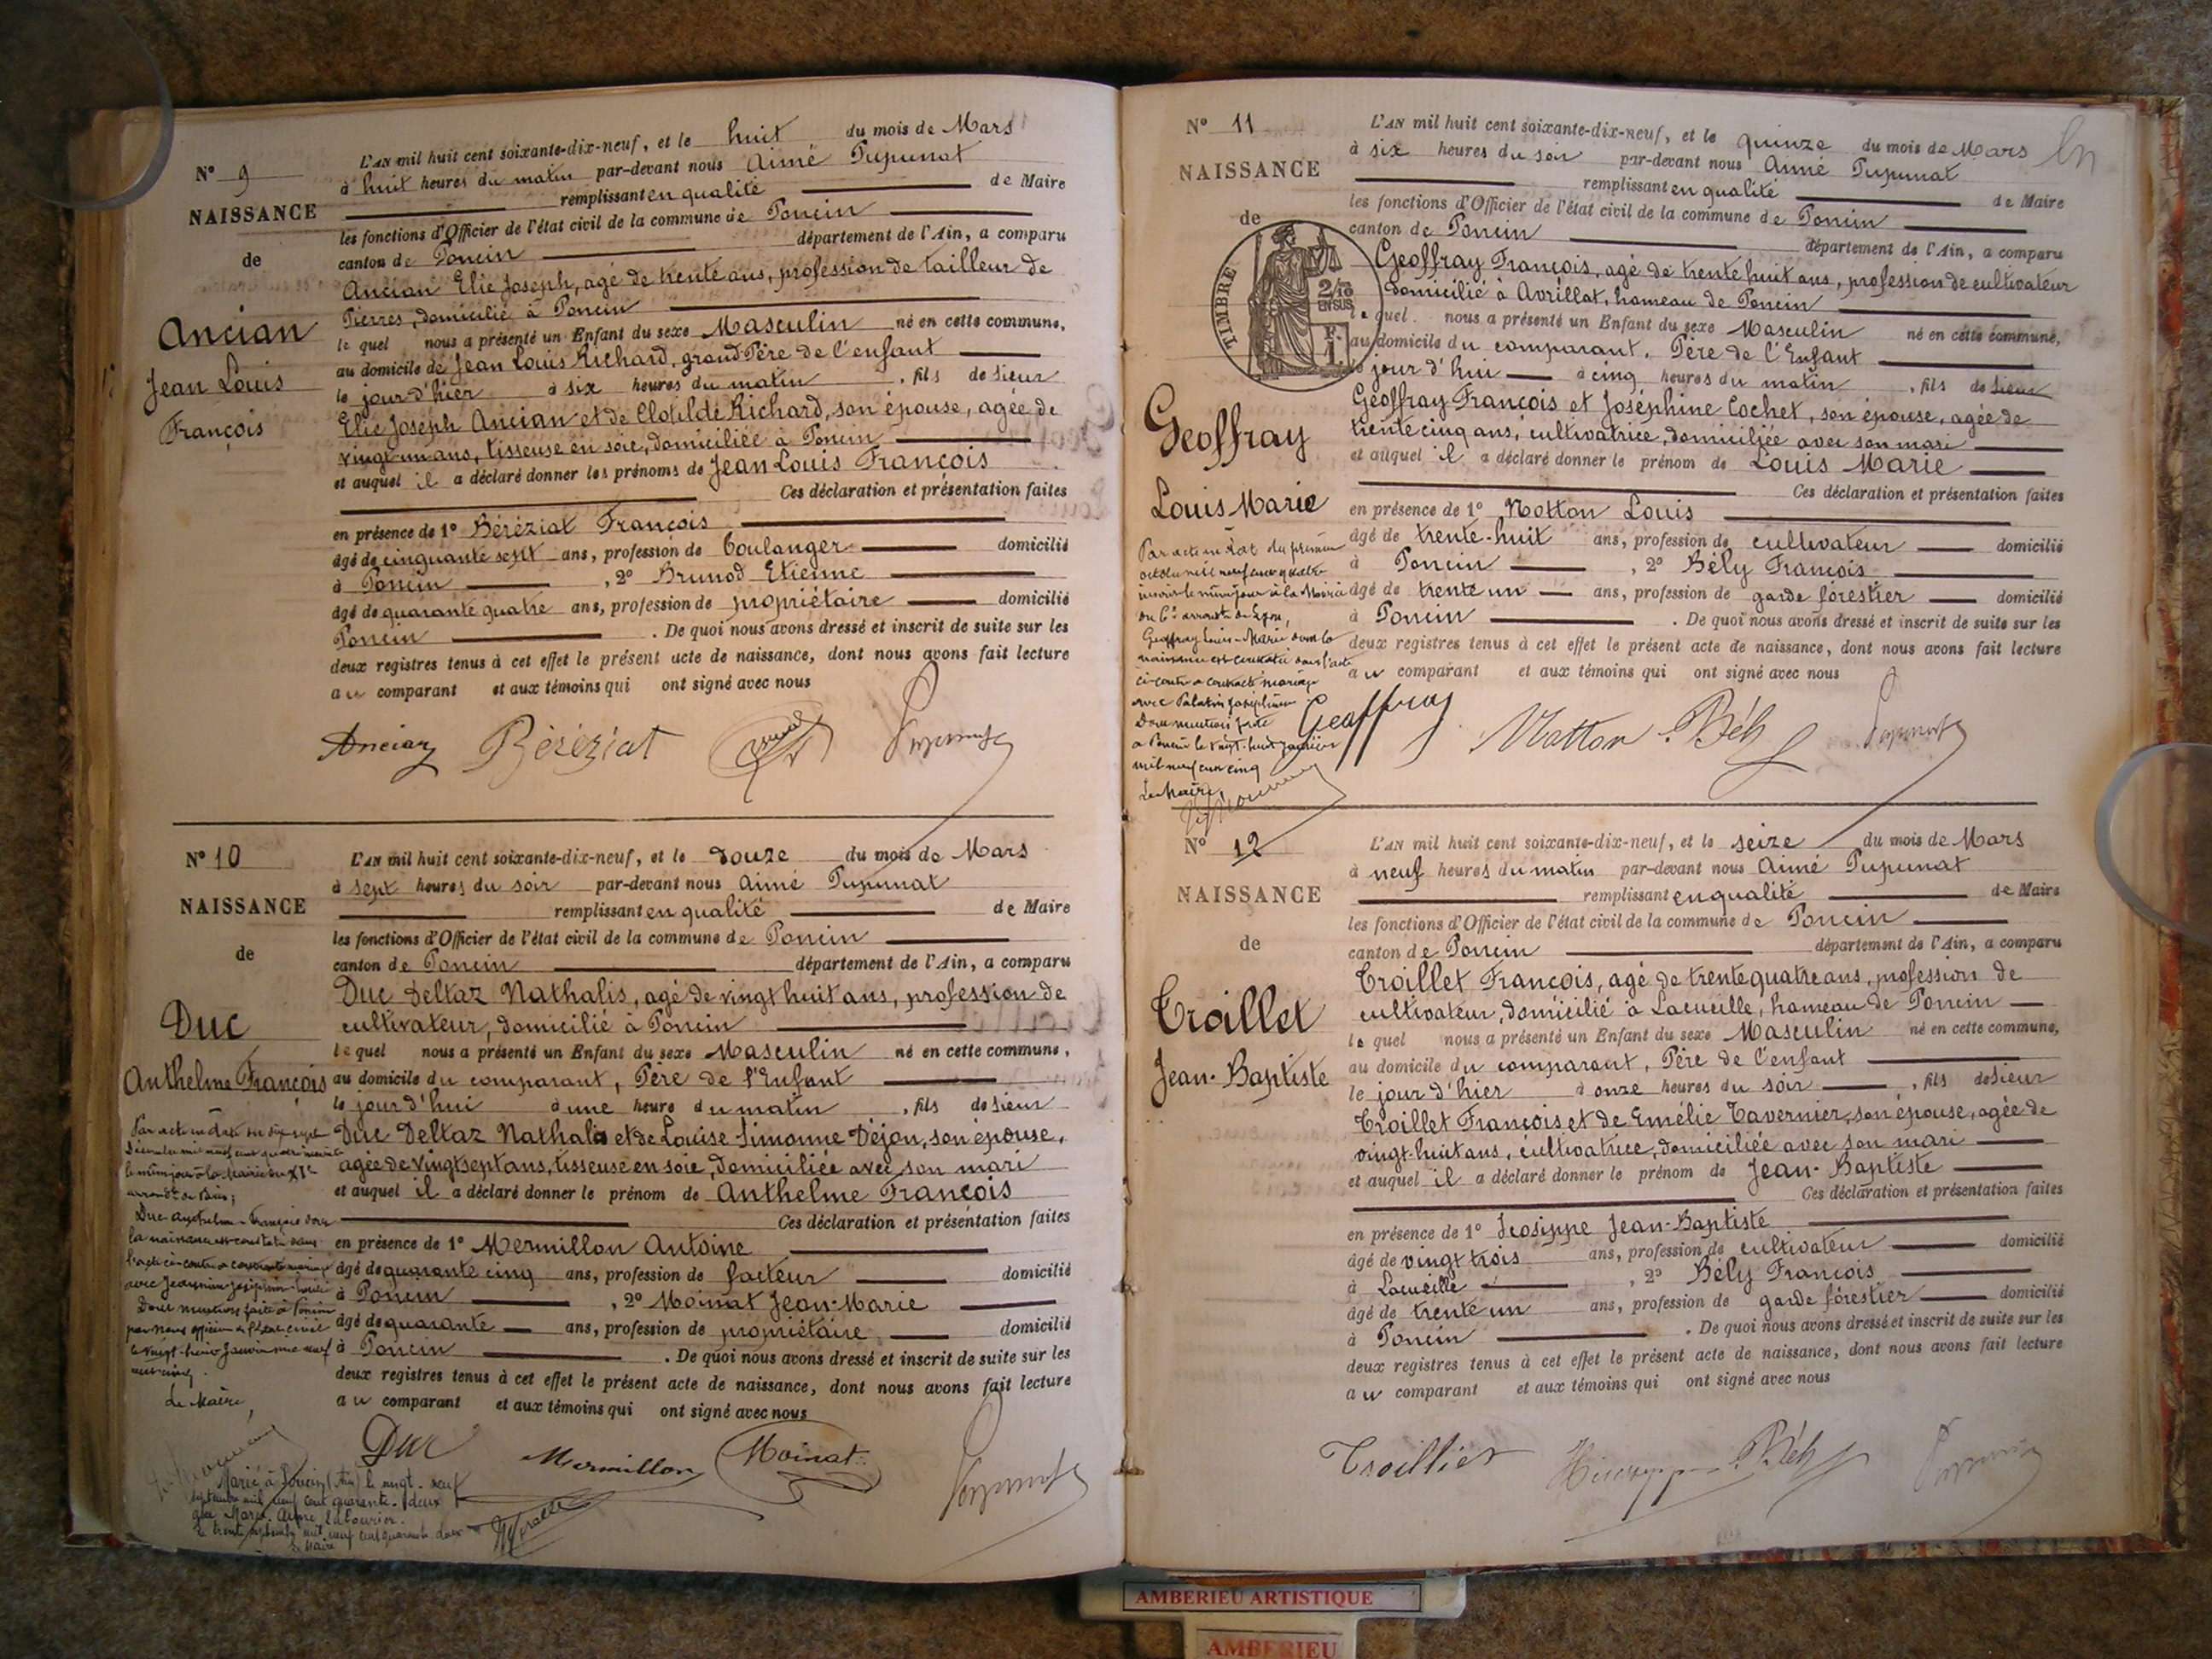 N° 9
NAISSANCE
de
Ancian
Jean Louis
François
L'AN mil huit cent soixante-dix-neuf, et le huit du mois de Mars
à huit heures du matin par-devant nous Aimé Pupunat
remplissant en qualité de Maire
les fonctions d'Officier de l'état civil de la commune de Poncin
canton de Poncin département de l'Ain, a comparu
Ancian Elie Joseph, agé de trente ans, profession de tailleur de
Pierres, domicilié à Poncin
le quel nous a présenté un Enfant du sexe Masculin né en cette commune,
au domicile de Jean Louis Richard, grand Père de l'enfant
le jour d'hier à six heures du matin, fils de Sieur
Elie Joseph Ancian et de Clotilde Richard, son épouse, agée de
vingt un ans, tisseuse en soie, domiciliée à Poncin
et auquel il a déclaré donner les prénoms de Jean Louis François
Ces déclaration et présentation faites
en présence de 1° Béréziat François
âgé de cinquante sept ans, profession de boulanger domicilié
à Poncin, 2° Brunod Etienne
âgé de quarante quatre ans, profession de propriétaire domicilié
Poncin. De quoi nous avons dressé et inscrit de suite sur les
deux registres tenus à cet effet le présent acte de naissance, dont nous avons fait lecture
au comparant et aux témoins qui ont signé avec nous
Ancian Béréziat
N° 10
NAISSANCE
de
Duc
Anthelme François
L'AN mil huit cent soixante-dix-neuf, et le douze du mois de Mars
à sept heures du soir par-devant nous Aimé Pupunat
remplissant en qualité de Maire
les fonctions d'Officier de l'état civil de la commune de Poncin
canton de Poncin département de l'Ain, a comparu
Duc Deltaz Nathalis, agé de vingt huit ans, profession de
cultivateur, domicilié à Poncin
le quel nous a présenté un Enfant du sexe Masculin né en cette commune,
au domicile du comparant, Père de l'Enfant
le jour d'hui à une heure du matin, fils de Sieur
Duc Deltaz Nathalis et de Louise Simonne Déjon, son épouse,
agée de vingt sept ans, tisseuse en soie, domiciliée avec son mari
et auquel il a déclaré donner le prénom de Anthelme François
Ces déclaration et présentation faites
en présence de 1° Mermillon Antoine
âgé de quarante cinq ans, profession de facteur domicilié
à Poncin, 2° Moinat Jean-Marie
âgé de quarante ans, profession de propriétaire domicilié
à Poncin. De quoi nous avons dressé et inscrit de suite sur les
deux registres tenus à cet effet le présent acte de naissance, dont nous avons fait lecture
au comparant et aux témoins qui ont signé avec nous
Le Maire,
Duc Mermillon Moinat
Marié à Poncin (Ain) le vingt-neuf
septembre mil neuf cent quarante-deux
le trente septembre mil neuf cent quarante deux
Le Maire
N° 11
NAISSANCE
de
TIMBRE
2/10
EN SUS
Geoffray
Louis Marie
L'AN mil huit cent soixante-dix-neuf, et le quinze du mois de Mars
à six heures du soir par-devant nous Aimé Pupunat
remplissant en qualité de Maire
les fonctions d'Officier de l'état civil de la commune de Poncin
canton de Poncin département de l'Ain, a comparu
Geoffray François, agé de trente huit ans, profession de cultivateur
domicilié à Avrillat, hameau de Poncin
le quel nous a présenté un Enfant du sexe Masculin né en cette commune,
au domicile du comparant, Père de l'Enfant
le jour d'hui à cinq heures du matin, fils de Sieur
Geoffray François et Joséphine Cochet, son épouse, agée de
trente cinq ans, cultivatrice, domiciliée avec son mari
et auquel il a déclaré donner le prénom de Louis Marie
Ces déclaration et présentation faites
en présence de 1° Notton Louis
âgé de trente-huit ans, profession de cultivateur domicilié
à Poncin, 2° Bély François
âgé de trente un ans, profession de garde forestier domicilié
à Poncin. De quoi nous avons dressé et inscrit de suite sur les
deux registres tenus à cet effet le présent acte de naissance, dont nous avons fait lecture
au comparant et aux témoins qui ont signé avec nous
Geoffray Louis-Marie dont la
naissance est constatée dans l'acte
ci-contre a contracté mariage
avec Palatin Joséphine
Dont mention faite
à Poncin le vingt-huit janvier
mil neuf cent cinq
Le Maire,
Geoffray Notton Bély
N° 12
NAISSANCE
de
Troillet
Jean-Baptiste
L'AN mil huit cent soixante-dix-neuf, et le seize du mois de Mars
à neuf heures du matin par-devant nous Aimé Pupunat
remplissant en qualité de Maire
les fonctions d'Officier de l'état civil de la commune de Poncin
canton de Poncin département de l'Ain, a comparu
Troillet François, agé de trente quatre ans, profession de
cultivateur, domicilié à Lacueille, hameau de Poncin
le quel nous a présenté un Enfant du sexe Masculin né en cette commune,
au domicile du comparant, Père de l'enfant
le jour d'hier à onze heures du soir, fils de Sieur
Troillet François et de Emélie Tavernier, son épouse, agée de
vingt-huit ans, cultivatrice, domiciliée avec son mari
et auquel il a déclaré donner le prénom de Jean-Baptiste
Ces déclaration et présentation faites
en présence de 1° Jean-Baptiste
âgé de vingt trois ans, profession de cultivateur domicilié
à Lacueille, 2° Bély François
âgé de trente un ans, profession de garde forestier domicilié
à Poncin. De quoi nous avons dressé et inscrit de suite sur les
deux registres tenus à cet effet le présent acte de naissance, dont nous avons fait lecture
au comparant et aux témoins qui ont signé avec nous
Troillier Bély
AMBERIEU ARTISTIQUE
AMBERIEU